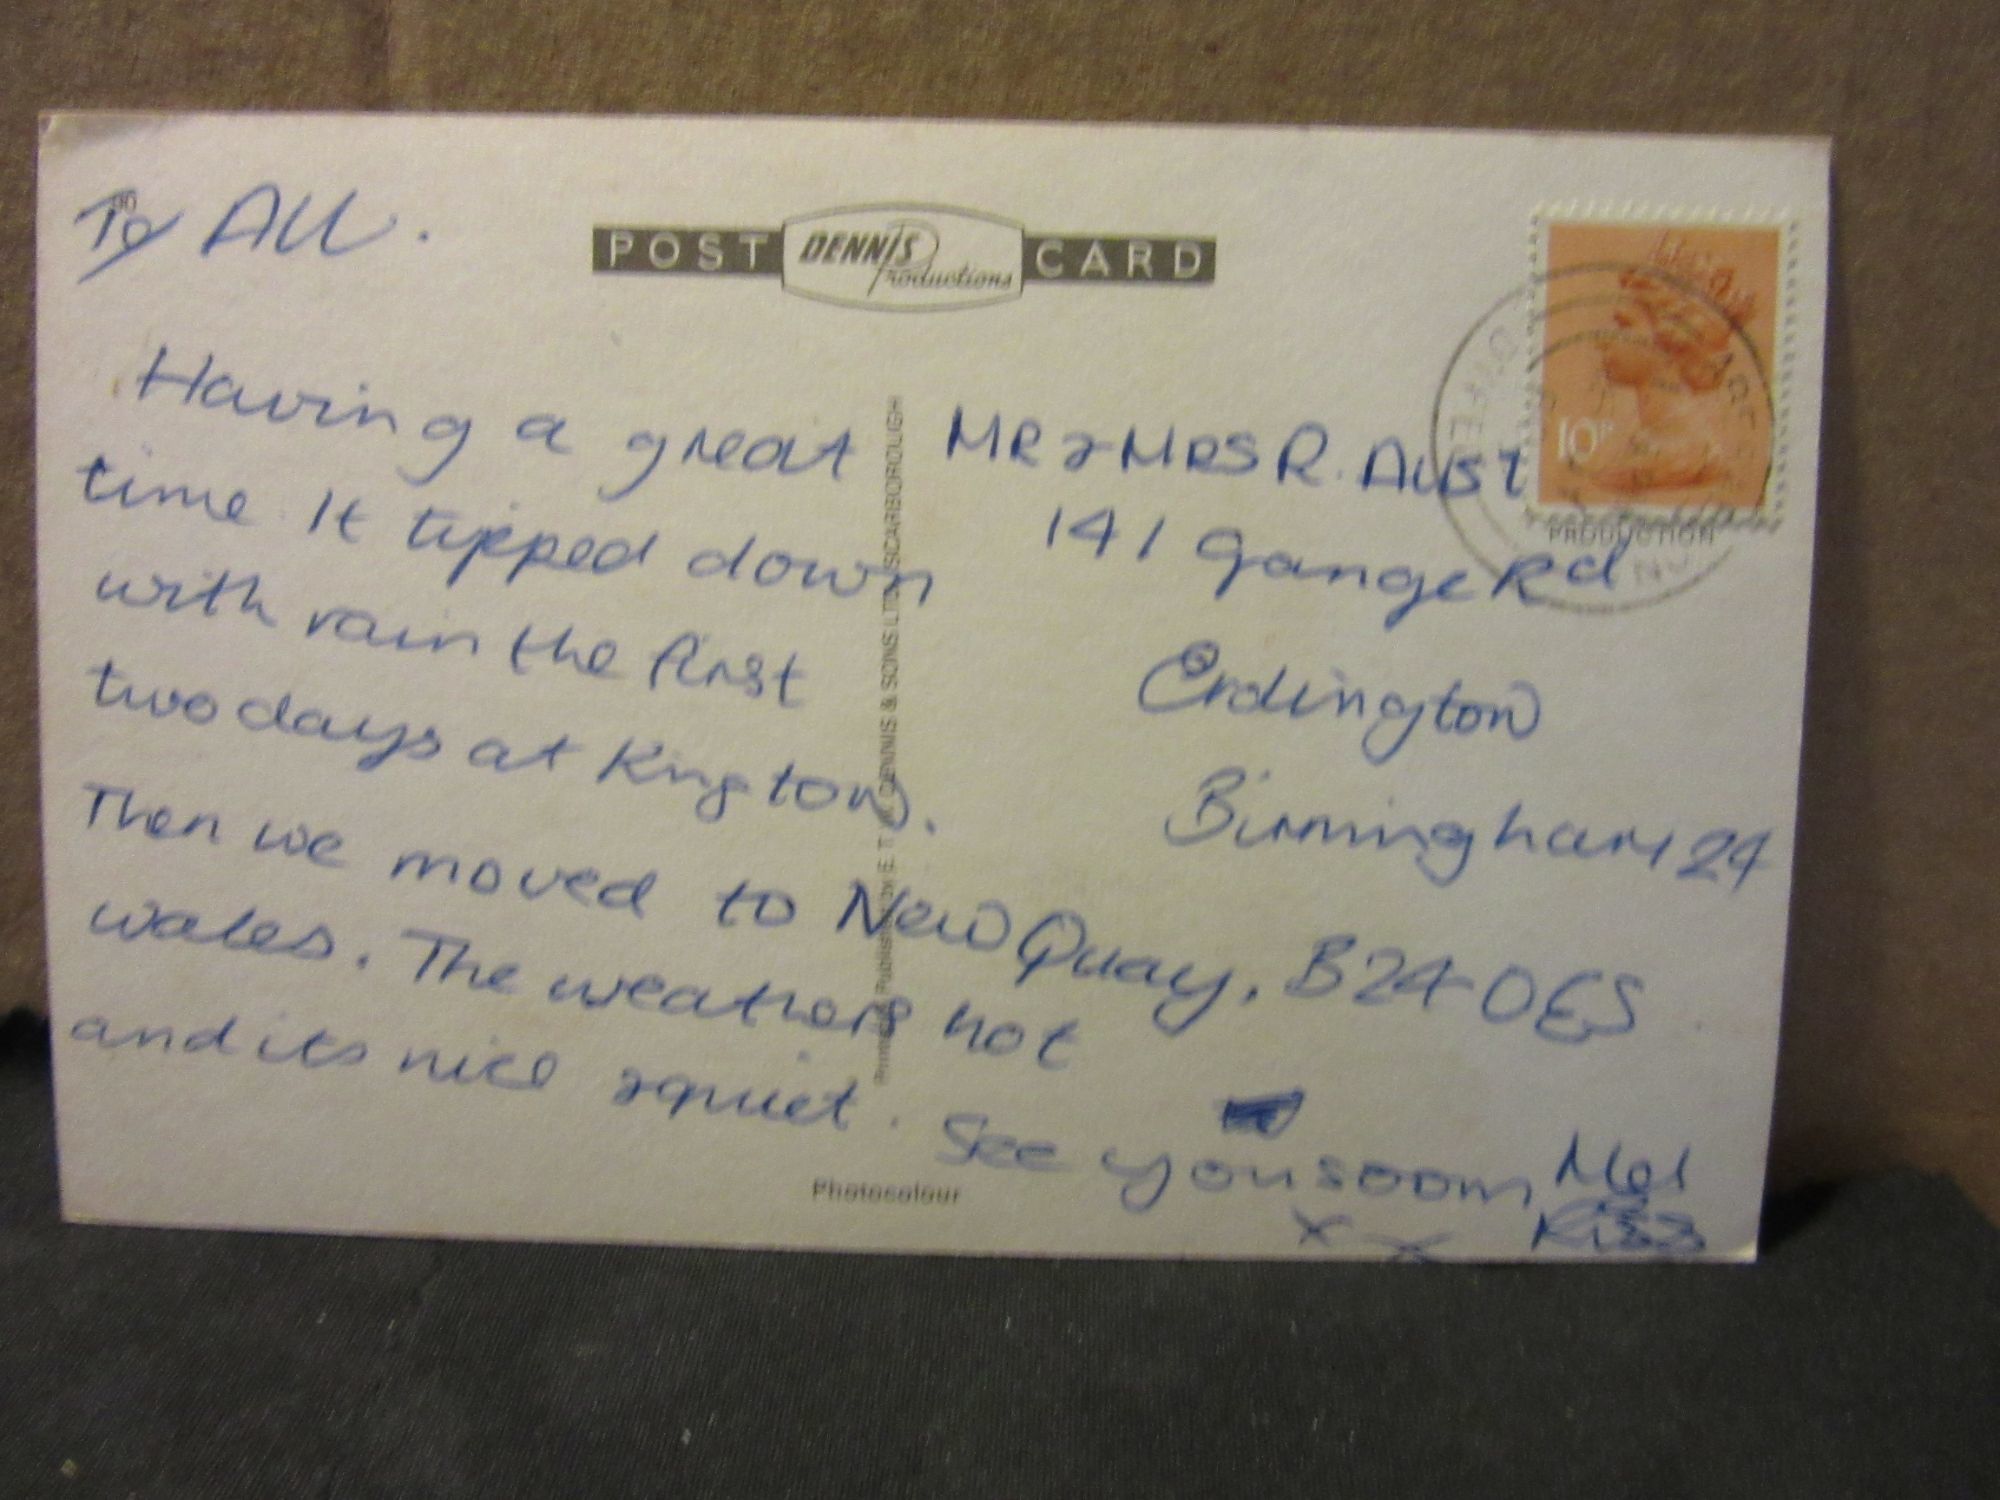 To All.
POST DENNIS Productions CARD
Having a great
time. It tipped down
with rain the first
two days at Kington.
Then we moved to New Quay,
wales. The weathers hot
and its nice & quiet. See you soon, Mel
x x Kiss
MR & MRS R. Aust
141 Gange Rd
Erdington
Birmingham 24
B24 OES
10P
PRODUCTION
Photocolour
DENNIS & SONS LTD. SCARBOROUGH